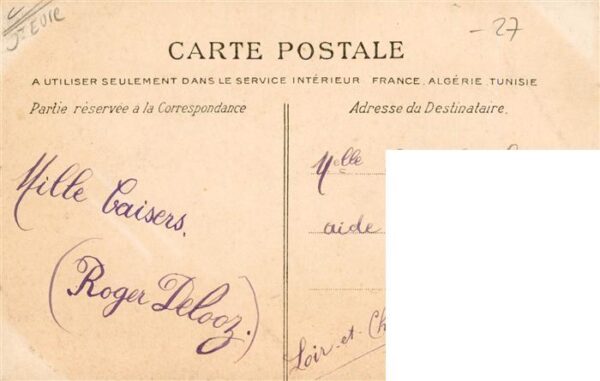 -27
CARTE POSTALE
A UTILISER SEULEMENT DANS LE SERVICE INTÉRIEUR FRANCE, ALGÉRIE TUNISIE
Partie réservée à la Correspondance
Adresse du Destinataire.
Mille baisers.
(Roger Delooz.)
Melle
aide
Loir-et-Ch